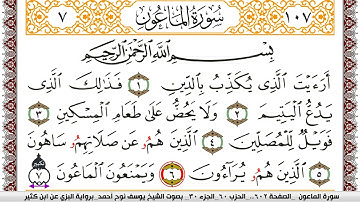 ٧ سُورَةُ الْمَاعُونِ ١٠٧
بِسْمِ اللَّهِ الرَّحْمَٰنِ الرَّحِيمِ
أَرَءَيْتَ الَّذِي يُكَذِّبُ بِالدِّينِ ١ فَذَٰلِكَ الَّذِي
يَدُعُّ الْيَتِيمَ ٢ وَلَا يَحُضُّ عَلَىٰ طَعَامِ الْمِسْكِينِ ٣
فَوَيْلٌ لِّلْمُصَلِّينَ ٤ الَّذِينَ هُمُۥ عَن صَلَاتِهِمُۥ سَاهُونَ
٥ الَّذِينَ هُمُۥ يُرَآءُونَ ٦ وَيَمْنَعُونَ الْمَاعُونَ ٧
سورة الماعون _ الصفحة ٦٠٢ .. الحزب ٦٠ _ الجزء ٣٠ _ بصوت الشيخ يوسف نوح أحمد _ برواية البزي عن ابن كثير